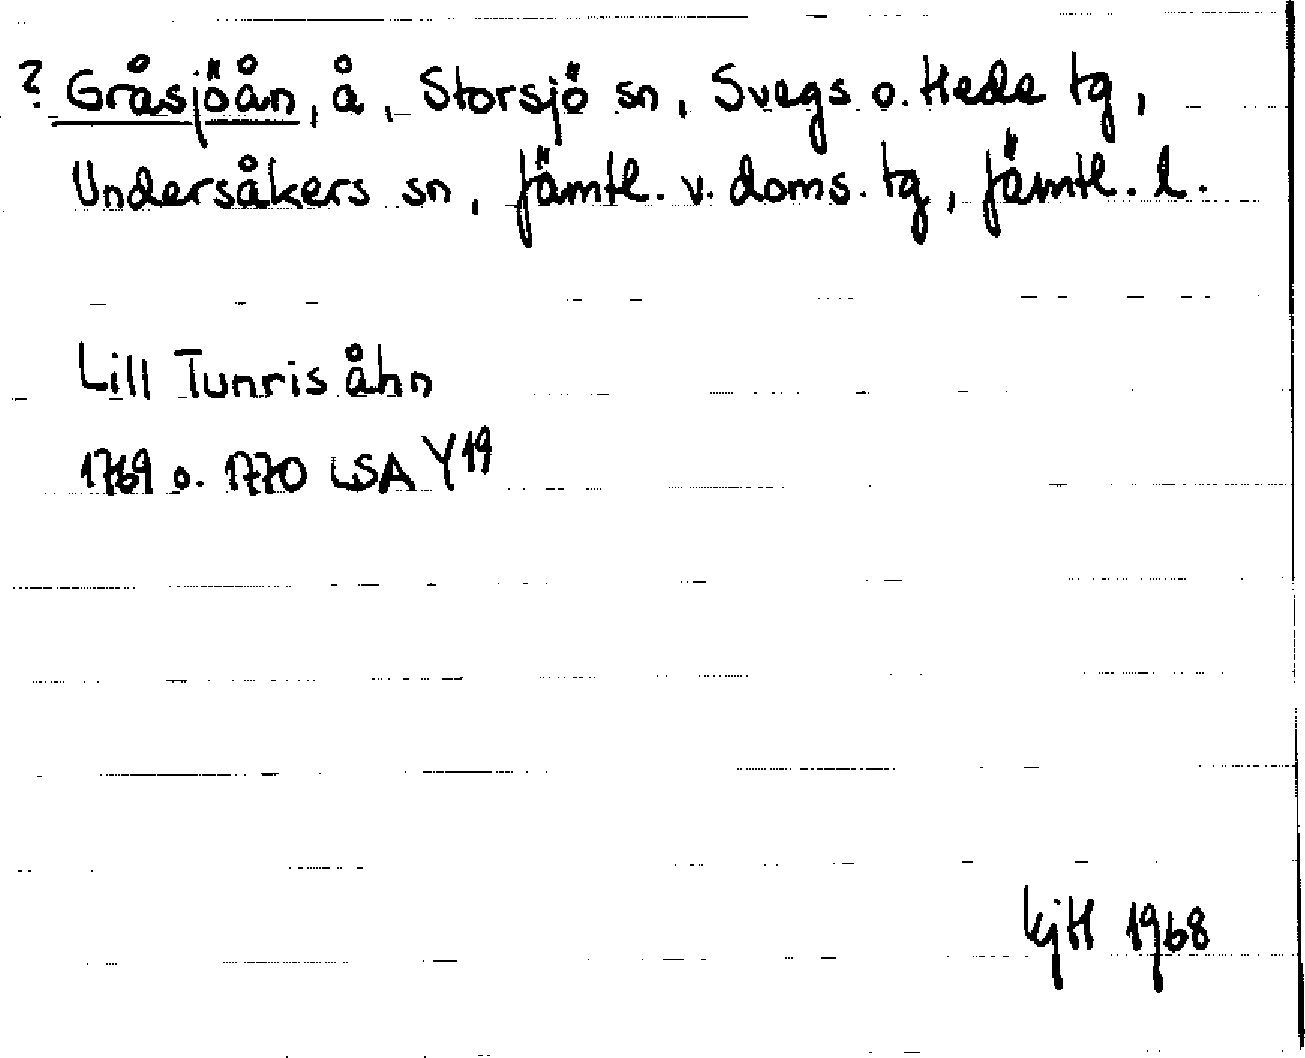 ? Gråsjöån, å, Storsjö sn, Svegs o. Hede tg,
Undersåkers sn, Jämtl. v. doms. tg, Jämtl. l.
Lill Tunris åhn
1769 o. 1770 LSA Y19
KjH 1968